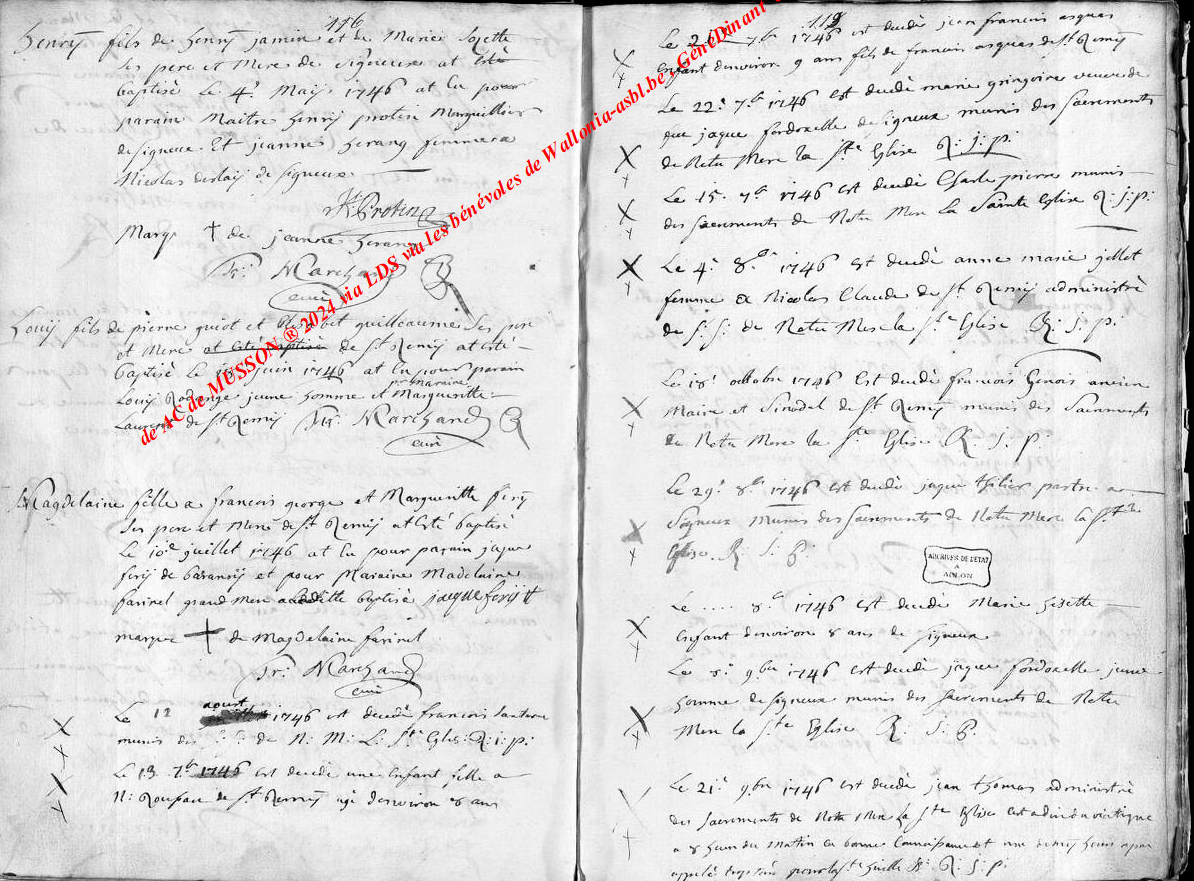 116
henrÿ fils de henrÿ jamin et de Marie Lozette
Ses pere et Mere de Signeux at Esté
baptisé Le 4e Maÿ 1746 at Eu pour
parain Maitre henrÿ protin Marguillier
de signeux Et jeanne herang femme a
Nicolas de signeux
H. Protin
Marque + de jeanne herang
Fr: Marchand
curé
Louis fils de pierre guiot et guilleaume Ses pere
et Mere at Esté baptisé de St Remÿ at Esté
baptisé Le juin 1746 at Eu pour parain
Louis jeune homme et pr Maraine Margueritte
Laurent de St Remÿ Fr: Marchand
curé
Magdelaine fille a francois george et Margueritte ferÿ
Ses pere et Mere de St Remÿ at Esté baptisé
Le 10e juillet 1746 at Eu pour parain jaque
ferÿ de baranzÿ et pour Maraine Madelaine
farinel grand Mere a baptisé jacque ferÿ
marque + de Magdelaine farinel
Fr: Marchand
curé
Le 12 aoust 1746 est decedé francois
munis des S: S: de N: M: L: Ste Eglise: R: i: p:
Le 13 7br 1746 est decedé une Enfant fille a
N: de St Remÿ agé denviron 8 ans
Le 7br 1746 est decedé jean francois asquas
Enfant denviron 9 ans fils de francois asquas de St Remÿ
Le 22e 7br 1746 est decedé marie gringoire veuve de
jaque fordoxelle de signeux munis des Sacrements
de Notre Mere la Ste Eglise R: j: p:
Le 15e 7br 1746 est decedé Charle pierre munis
des Sacrements de Notre Mere La Sainte Eglise R: j: p:
Le 4e 8br 1746 est decedé anne marie jillet
femme a Nicolas Claude de St Remÿ administré
de S: S: de Notre Mere la Ste Eglise R: j: p:
Le 18e octobre 1746 Est decedé francois henois ancien
Maire et Sinodel de St Remÿ munis des Sacrements
de Notre Mere la Ste Eglise R. j. p.
Le 29e 8br 1746 est decedé jaque
Signeux Munis des Sacrements de Notre Mere la Ste
Eglise. R. j. P.
ARCHIVES DE L'ETAT
A
ARLON
Le .... 8br 1746 est decedé Marie
Enfant denviron 8 ans de signeux
Le 8e 9bre 1746 est decedé jaque fordoxelle jeune
homme de signeux munis des Sacrements de Notre
Mere la Ste Eglise R. j. P.
Le 21e 9bre 1746 est decedé jean thomas administré
des Sacrements de Notre Mere La Ste Eglise
a 8 heures du Matin en bonne Connoissance et une demÿ heure apres
appelé trop tard pour la Ste huille R. j. p.
de AC de MUSSON ® 2024 via LDS via les bénévoles de Wallonia-asbl.be - GénéDinant